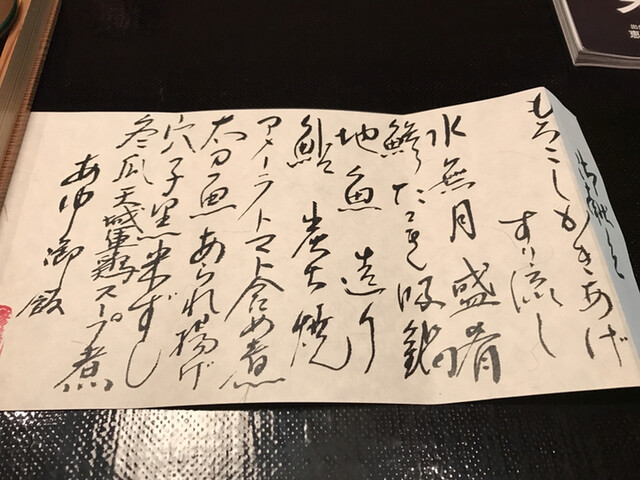 御献立
もろこしかきあげ
すり流し
水無月盛肴
鱧たたき吸鍋
地魚造り
鮎炭火焼
アメーラトマト含め煮
太刀魚あられ揚げ
穴子黒米ずし
冬瓜天城軍鶏スープ煮
あゆ御飯